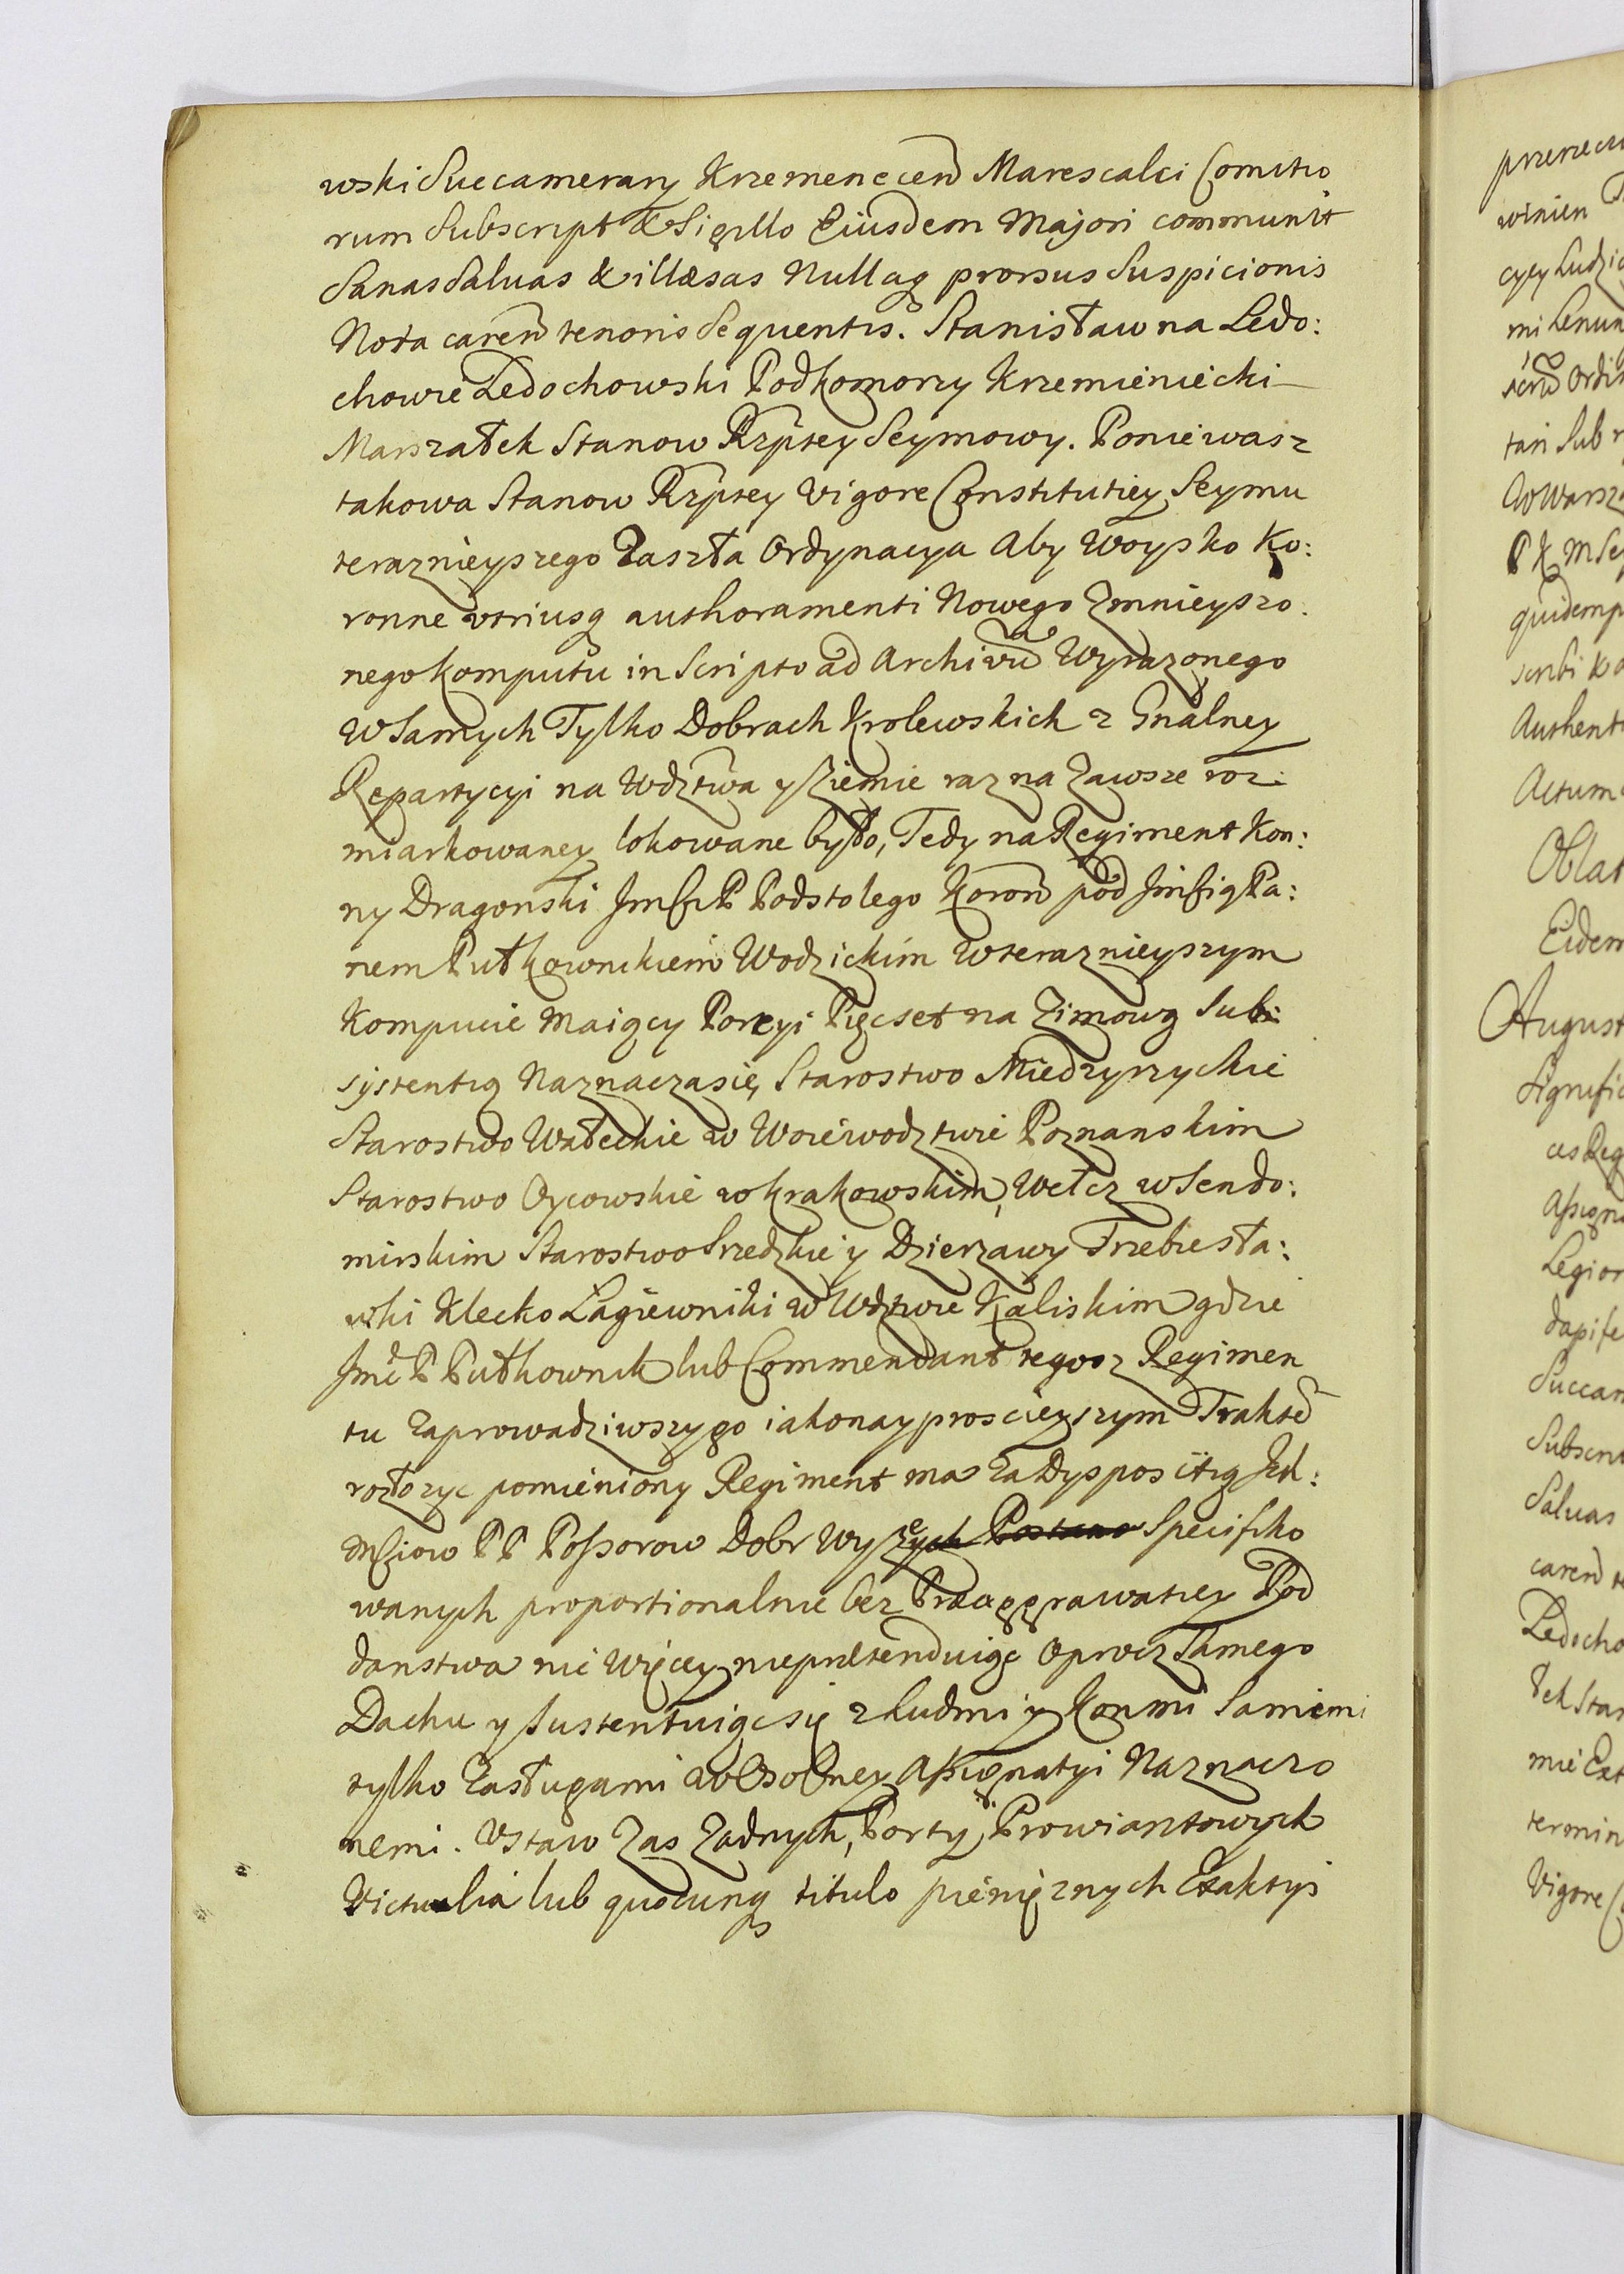 wski Succamerary Krzemenecen Marescalci Comitio
rum Subscript & Sigillo Eiusdem Majori communit
Sanas Saluas & illæsas Nullaq prorsus Suspicionis
Nota caren tenoris Sequentis. Stanisław na Ledo:
chowie Ledochowski Podkomorzy Krzemieniecki
Marszałek Stanow Rzptey Seymowy. Poniewasz
takowa Stanow Rzptey Vigore Constitutiey Seymu
teraznieyszego Zaszła Ordynacya Aby Woysko Ko:
ronne utriusq authoramenti Nowego Zmnieyszo.
nego Komputu in Scripto ad Archivu Wyrazonego
W Samych Tylko Dobrach Krolewskich z Gnalney
Repartycyi na Wdztwa y Ziemie raz na Zawsze roz:
miarkowaney lokowane było, Tedy na Regiment Kon:
ny Dragonski Jm P Podstolego Koron pod Jm Pa:
nem Pułkownikiem Wodzickim W teraznieyszym
Kompucie Maiący Porcyi Pięcset na Zimową Sub:
systentią Naznacza się, Starostwo Miedzyrzyckie
Starostwo Wałeckie w Woiewodztwie Poznanskim
Starostwo Oycowskie w Krakowskim, Wełcz w Sendo:
mirskim Starostwo Srzedzkie y Dzierzawy Trzebiesła:
wki Klecko Łagiewniki w Wdztwie Kaliskim gdzie
Jmć P Pułkownik lub Commendant tegosz Regimen
tu Zaprowadziwszy go iako nayproscieyszym Traktē
rozłozyc pomieniony Regiment ma za Dyspositią Ich:
Mciow PP Possorow Dobr Wyże Specifiko
wanych proportionalnie bez Præaggrawatiey Pod
danstwa nic Więcey nieprætenduiąc Oprocz Samego
Dachu y Sustentuiąc się z Ludmi y Konmi Samemi
tylko Zasługami w Osobney Assignatyi Naznaczo
nemi. Ustaw Zas Zadnych, Porty, Prowiantowych
Victualia lub quocunq titulo pieniężnych Exaktyi